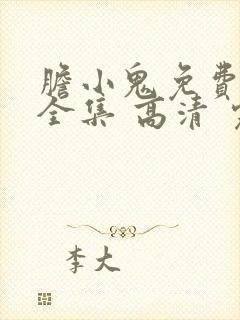 膽小鬼免費
全集 高清
李大